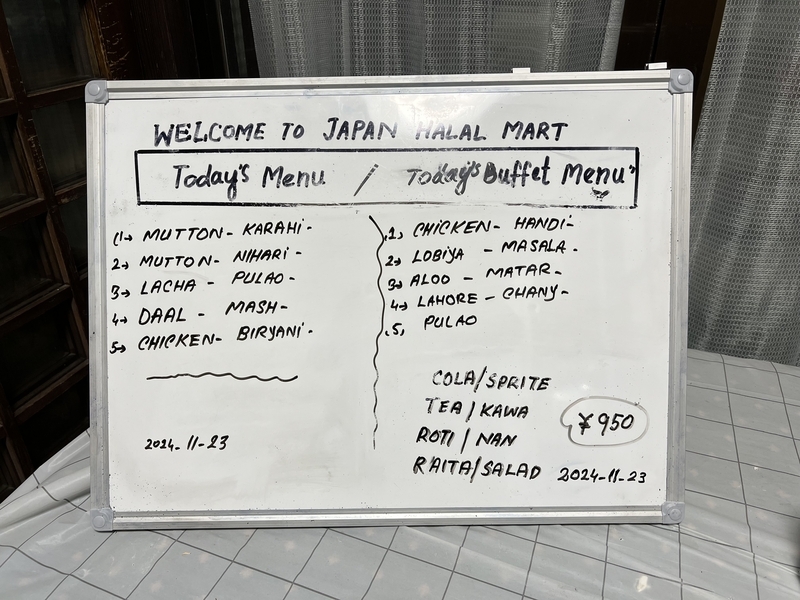 WELCOME TO JAPAN HALAL MART
Today's Menu / Today's Buffet Menu
1→ MUTTON- KARAHI-
2→ MUTTON- NIHARI-
3→ LACHA - PULAO-
4→ DAAL - MASH-
5→ CHICKEN- BIRYANI-
2024-11-23
1, CHICKEN- HANDI-
2→ LOBIYA - MASALA-
3→ ALOO - MATAR-
4→ LAHORE - CHANY-
5, PULAO
COLA/SPRITE
TEA/KAWA
ROTI/NAN
RAITA/SALAD
¥950
2024-11-23